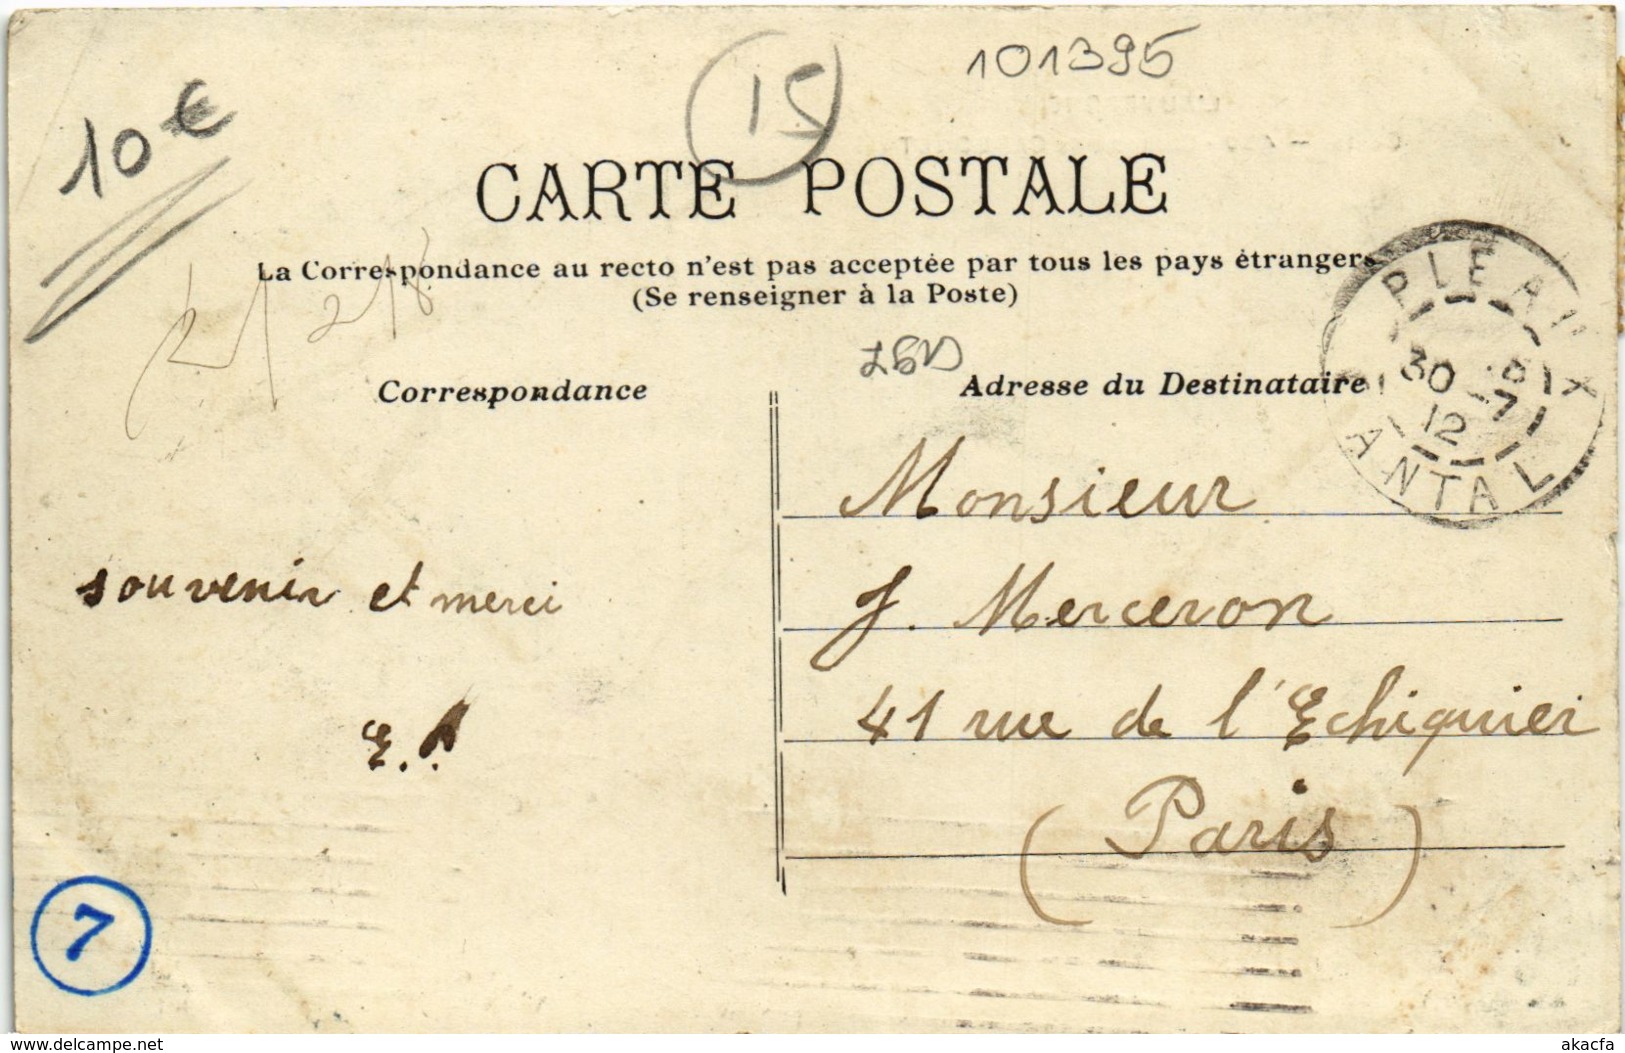 101395
15
10 €
CARTE POSTALE
La Correspondance au recto n'est pas acceptée par tous les pays étrangers
(Se renseigner à la Poste)
Correspondance
Adresse du Destinataire
PLEAUX
30 -7
12
CANTAL
Monsieur
J. Merceron
41 rue de l'Echiquier
(Paris)
souvenir et merci
E.
7
www.delcampe.net
akacfa